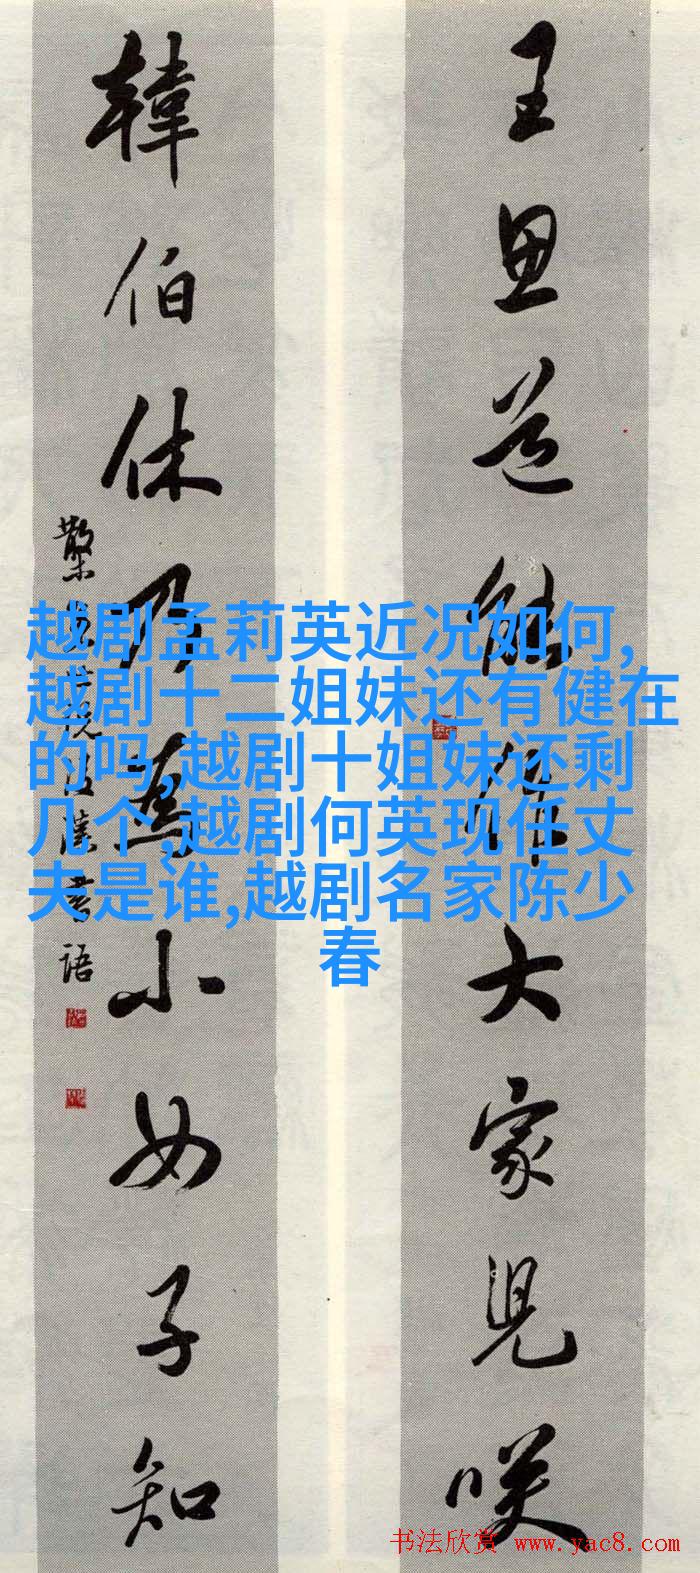 王思道能作大家兒咲
韓伯休乃為小女子知
越剧孟莉英近况如何,
越剧十二姐妹还有健在
的吗,越剧十姐妹还剩
几个,越剧何英现任丈
夫是谁,越剧名家陈少
春
书法欣赏 www.yac8.com